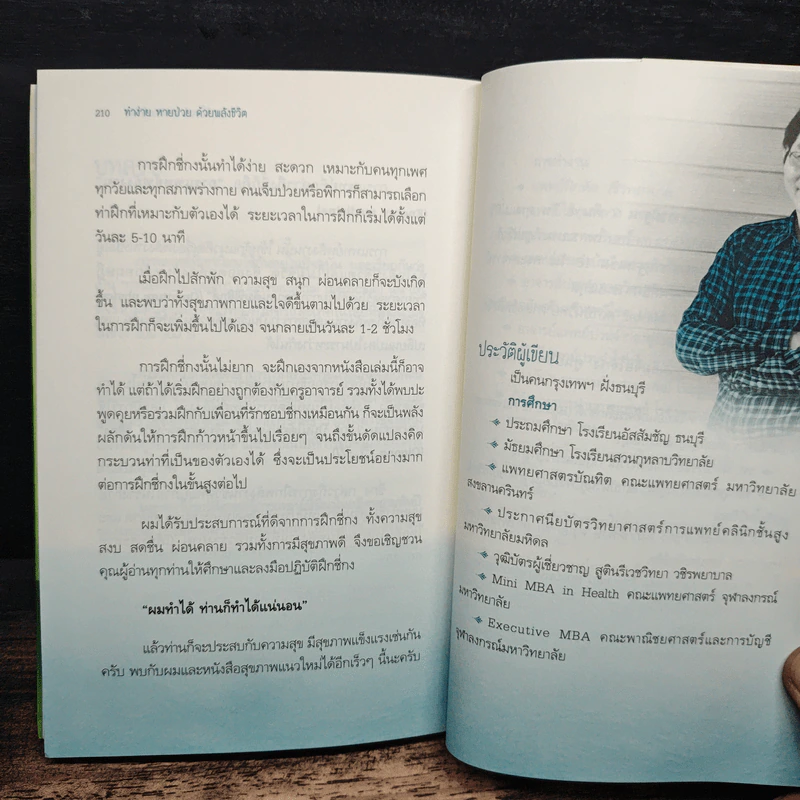 210 ทำง่าย หายป่วย ด้วยพลังชีวิต
การฝึกชี่กงนั้นทำได้ง่าย สะดวก เหมาะกับคนทุกเพศ
ทุกวัยและทุกสภาพร่างกาย คนเจ็บป่วยหรือพิการก็สามารถเลือก
ท่าฝึกที่เหมาะกับตัวเองได้ ระยะเวลาในการฝึกก็เริ่มได้ตั้งแต่
วันละ 5-10 นาที
เมื่อฝึกไปสักพัก ความสุข สนุก ผ่อนคลายก็จะบังเกิด
ขึ้น และพบว่าทั้งสุขภาพกายและใจดีขึ้นตามไปด้วย ระยะเวลา
ในการฝึกก็จะเพิ่มขึ้นไปได้เอง จนกลายเป็นวันละ 1-2 ชั่วโมง
การฝึกชี่กงนั้นไม่ยาก จะฝึกเองจากหนังสือเล่มนี้ก็อาจ
ทำได้ แต่ถ้าได้เริ่มฝึกอย่างถูกต้องกับครูอาจารย์ รวมทั้งได้พบปะ
พูดคุยหรือร่วมฝึกกับเพื่อนที่รักชอบชี่กงเหมือนกัน ก็จะเป็นพลัง
ผลักดันให้การฝึกก้าวหน้าขึ้นไปเรื่อยๆ จนถึงขั้นดัดแปลงคิด
กระบวนท่าที่เป็นของตัวเองได้ ซึ่งจะเป็นประโยชน์อย่างมาก
ต่อการฝึกชี่กงในขั้นสูงต่อไป
ผมได้รับประสบการณ์ที่ดีจากการฝึกชี่กง ทั้งความสุข
สงบ สดชื่น ผ่อนคลาย รวมทั้งการมีสุขภาพดี จึงขอเชิญชวน
คุณผู้อ่านทุกท่านให้ศึกษาและลงมือปฏิบัติฝึกชี่กง
“ผมทำได้ ท่านก็ทำได้แน่นอน”
แล้วท่านก็จะประสบกับความสุข มีสุขภาพแข็งแรงเช่นกัน
ครับ พบกับผมและหนังสือสุขภาพแนวใหม่ได้อีกเร็วๆ นี้นะครับ
ประวัติผู้เขียน
เป็นคนกรุงเทพฯ ฝั่งธนบุรี
การศึกษา
ประถมศึกษา โรงเรียนอัสสัมชัญ ธนบุรี
มัธยมศึกษา โรงเรียนสวนกุหลาบวิทยาลัย
แพทยศาสตรบัณฑิต คณะแพทยศาสตร์ มหาวิทยาลัย
สงขลานครินทร์
ประกาศนียบัตรวิทยาศาสตร์การแพทย์คลินิกชั้นสูง
มหาวิทยาลัยมหิดล
วุฒิบัตรผู้เชี่ยวชาญ สูตินรีเวชวิทยา วชิรพยาบาล
Mini MBA in Health คณะแพทยศาสตร์ จุฬาลงกรณ์
มหาวิทยาลัย
Executive MBA คณะพาณิชยศาสตร์และการบัญชี
จุฬาลงกรณ์มหาวิทยาลัย